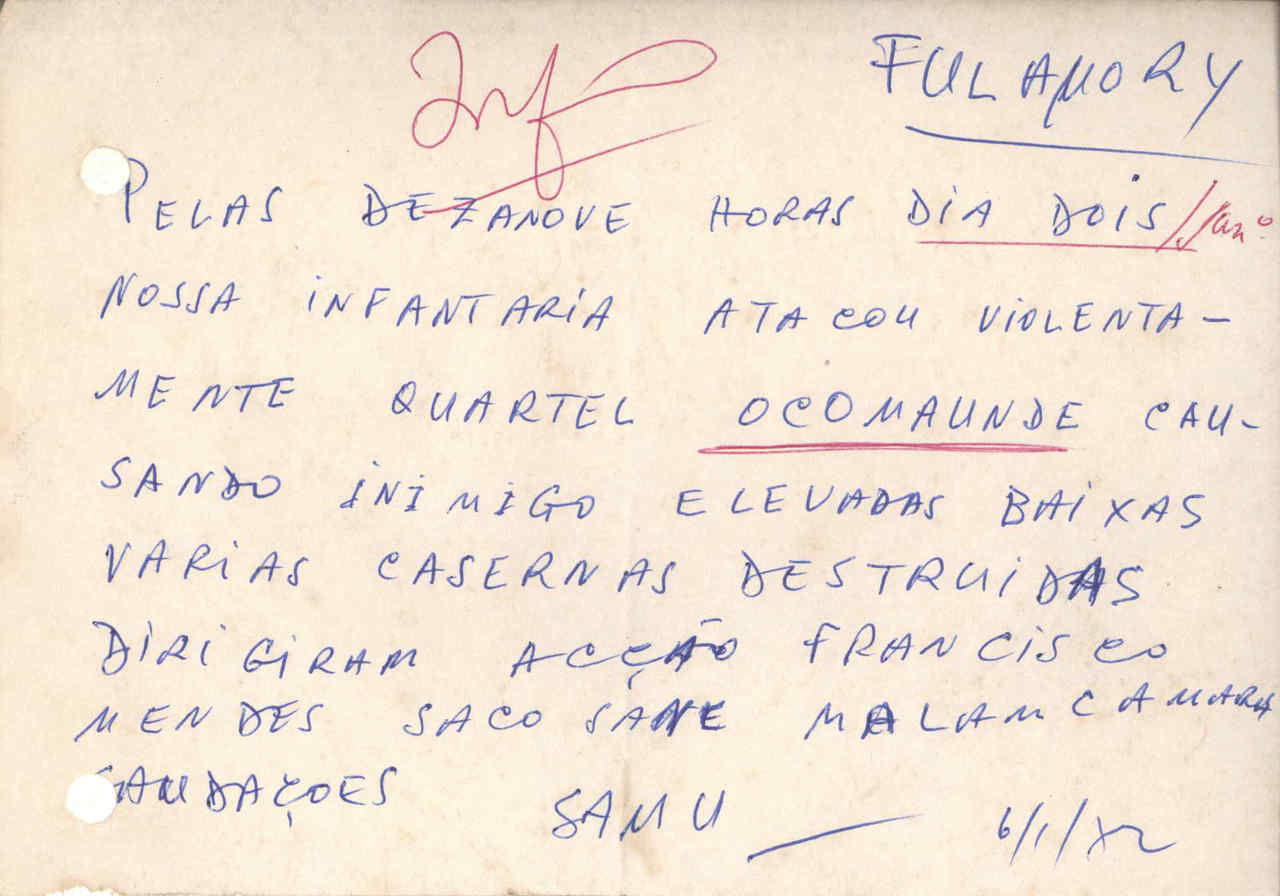 Inf
FULAMORY
PELAS DEZANOVE HORAS DIA DOIS / Janº
NOSSA INFANTARIA ATACOU VIOLENTA-
MENTE QUARTEL OCOMAUNDE CAU-
SANDO INIMIGO ELEVADAS BAIXAS
VARIAS CASERNAS DESTRUIDAS
DIRIGIRAM ACÇÃO FRANCISCO
MENDES SACO SANE MALAM CAMARA
SAUDAÇOES
SAMU 6/1/72